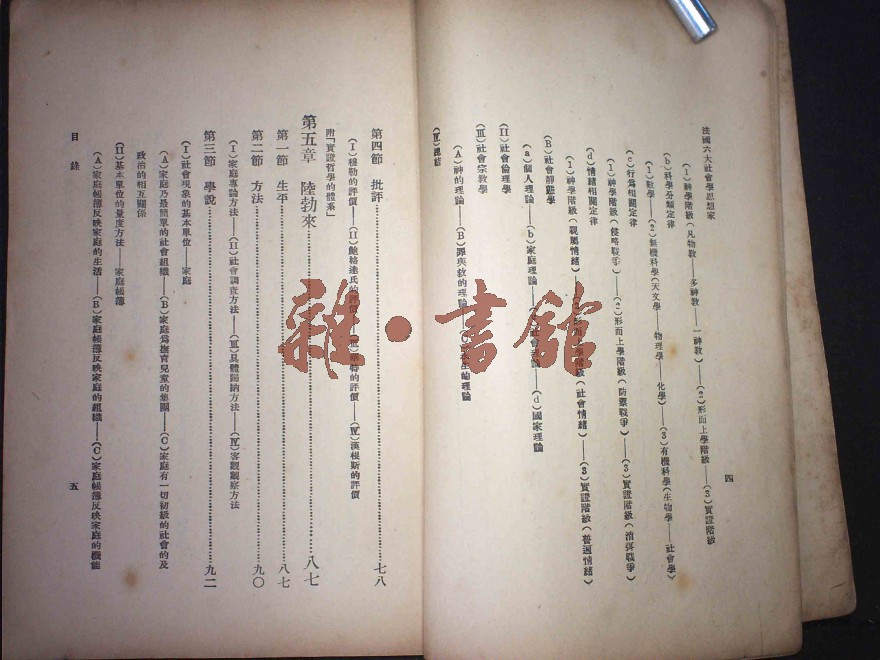 法國六大社會學思想家
四
(1)神學階級(凡物教——多神教——一神教)——(2)形而上學階級——(3)實證階級
(b)科學分類定律
(1)數學——(2)無機科學(天文學——物理學——化學)——(3)有機科學(生物學——社會學)
(c)行爲相關定律
(1)神學階級(侵略戰爭)——(2)形而上學階級(防禦戰爭)——(3)實證階級(消弭戰爭)
(d)情緒相關定律
(1)神學階級(親屬情緒)——(2)形而上學階級(社會情緒)——(3)實證階級(普遍情緒)
(B)社會靜態學
(a)個人理論——(b)家庭理論——(c)社會理論——(d)國家理論
(II)社會倫理學
(III)社會宗教學
(A)神的理論——(B)禪與救的理論——(C)永生的理論
(IV)總結
第四節 批評 七八
(I)穆勒的評價——(II)鮑格達氏的評價——(III)的評價——(IV)漢根斯的評價
附「實證哲學的體系」
第五章 陸勃來 八七
第一節 生平 八七
第二節 方法 九〇
(I)家庭專論方法——(II)社會調查方法——(III)具體歸納方法——(IV)客觀觀察方法
第三節 學說 九二
(I)社會現象的基本單位——家庭
(A)家庭乃最簡單的社會組織——(B)家庭爲撫育兒童的集團——(C)家庭有一切初級的社會的及
政治的相互關係
(II)基本單位的量度方法——家庭帳簿
(A)家庭帳簿反映家庭的生活——(B)家庭帳簿反映家庭的組織——(C)家庭帳簿反映家庭的機能
目錄
五
雜·書館